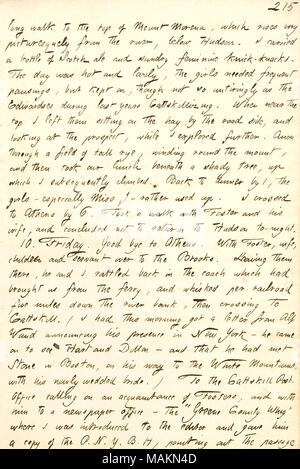 215
long walk to the top of Mount Merena, which rises very
picturesquely from the river, below Hudson. I carried
a bottle of Scotch ale and sundry feminine knick-knacks.
The day was hot and lovely, the girls needed frequent
pausings, but kept on, though not so untiringly as the
Edwardses during last year's Catskill-ing. When near the
top I left them sitting on the hay by the road side, and
looking at the prospect, while I explored further. Anon
through a field of tall rye, winding round the mount,
and then took our lunch beneath a shady tree, up
which I subsequently climbed. Back to dinner by 1, the
girls - especially Miss J - rather used up. I crossed
to Athens by 6. Took a walk with Foster and his
wife, and concluded not to return to Hudson to-night.
10. Friday. Good bye to Athens. With Foster, wife,
children and servant over to the Brooks. Leaving them
there, he and I rattled back in the coach which had
brought us from the ferry, and whisked per railroad
five miles down the river bank, then crossing to
Catskill. (I had this morning got a letter from Alf
Waud announcing his presence in New York - he came
on to see Hart and Dillon - and that he had met
Stone in Boston, on his way to the White Mountains,
with his newly wedded bride.) To the Catskill Post
Office calling on an acquaintance of Foster's, and with
him to a newspaper office - the "Greene County Whig"
where I was introduced to the editor and gave him
a copy of the P. N. Y. B. H, pointing out the passage
alamy
Image ID: MAKN4D
www.alamy.com